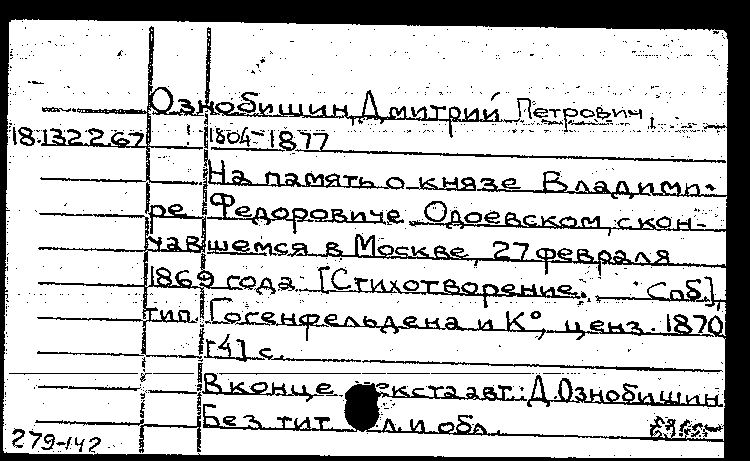 Ознобишин, Дмитрий Петрович,
18.132.2.67 1804-1877
На память о князе Владими-
ре Федоровиче Одоевском, скон-
чавшемся в Москве, 27 февраля
1869 года. [Стихотворение. Спб],
тип. Гогенфельдена и К°, ценз. 1870
[4] с.
В конце текста авт.: Д. Ознобишин
Без тит. л. и обл.
279-142